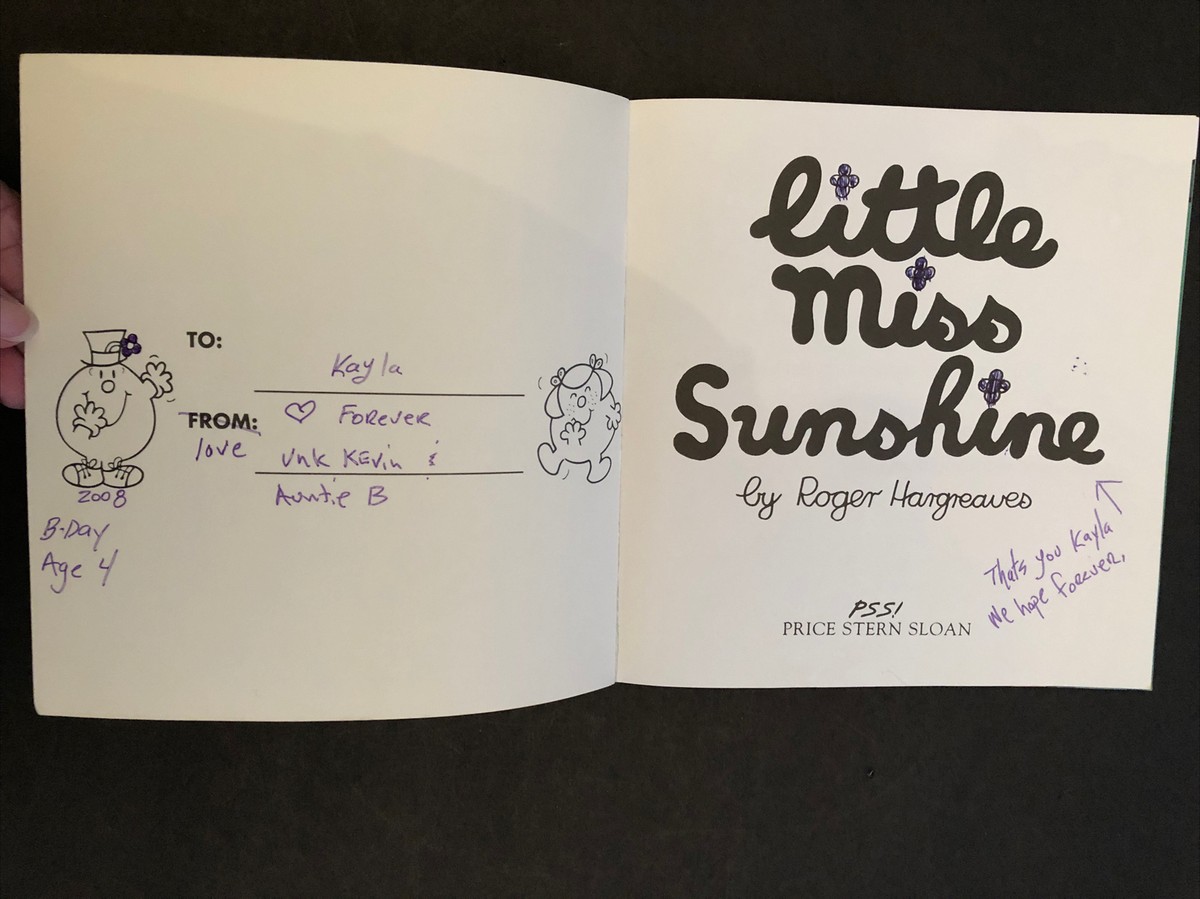 TO:
Kayla
FROM:
love
♡ FOREVER
Unk KEVin &
Auntie B
2008
B-Day
Age 4
little
Miss
Sunshine
by Roger Hargreaves
Thats you Kayla
We hope Forever.
PSS!
PRICE STERN SLOAN